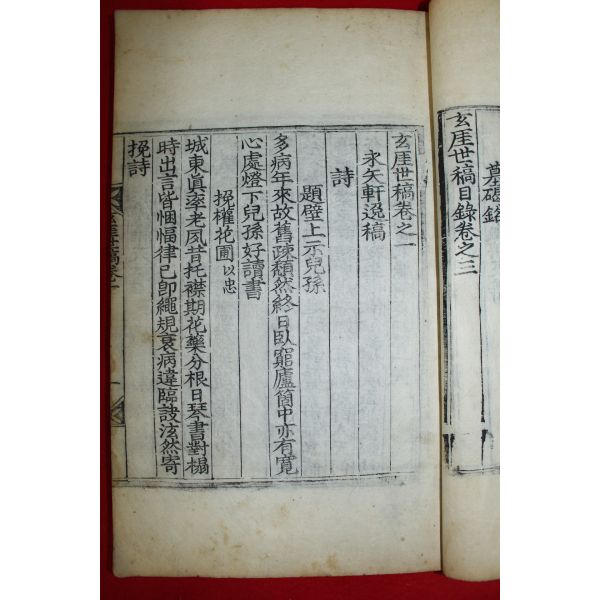 墓碣銘
玄厓世稿目錄卷之三
玄厓世稿卷之一
永矢軒逸稿
詩
題壁上示兒孫
多病年來故舊疎頹然終日臥窮廬箇中亦有寬
心處燈下兒孫好讀書
挽權花圃以忠
城東眞率老夙昔托襟期花藥分根日琴書對榻
時出言皆悃愊律己卽繩規衰病違臨訣泫然寄
挽詩